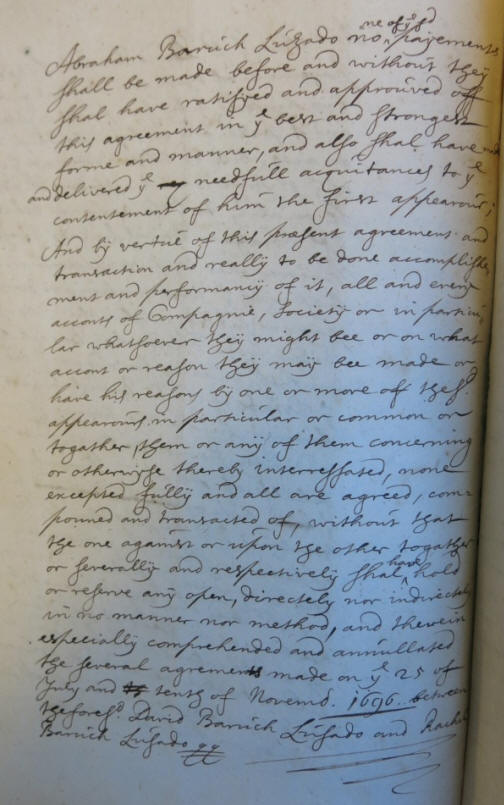 ne of yᵉ sᵈ
Abraham Baruch Lusado no payements
shall be made before and without they
shal have ratifyed and approuved off
this agreement in yᵉ best and strongest
forme and manner, and also shal have made
and delivered yᵉ needfull acquitances to yᵉ
contentement of him the first appearour;
And by vertue of this present agreement and
transaction and really to be done accomplishe
ment and performancy of it, all and every
acconts of Compagnie, Society or in particu
lar whatsoever they might bee or on what
accont or reason they may bee made or
have his reasons by one or more off the sᵈ
appearours in particular or common or
togather, them or any of them concerning
or otherwyse thereby interressated, none
excepted fully and all are agreed, com=
pouned and transacted of, without that
the one against or upon the other togather
or severally and respectively shal have hold
or reserve any open, directely nor indirectely
in no manner nor method, and therein
especially comprehended and annullated
the several agrements made on yᵉ 25 of
July and tenth of Novemb. 1696 between
the foresᵈ David Barruch Lusado and Rachel
Barruch Lusado